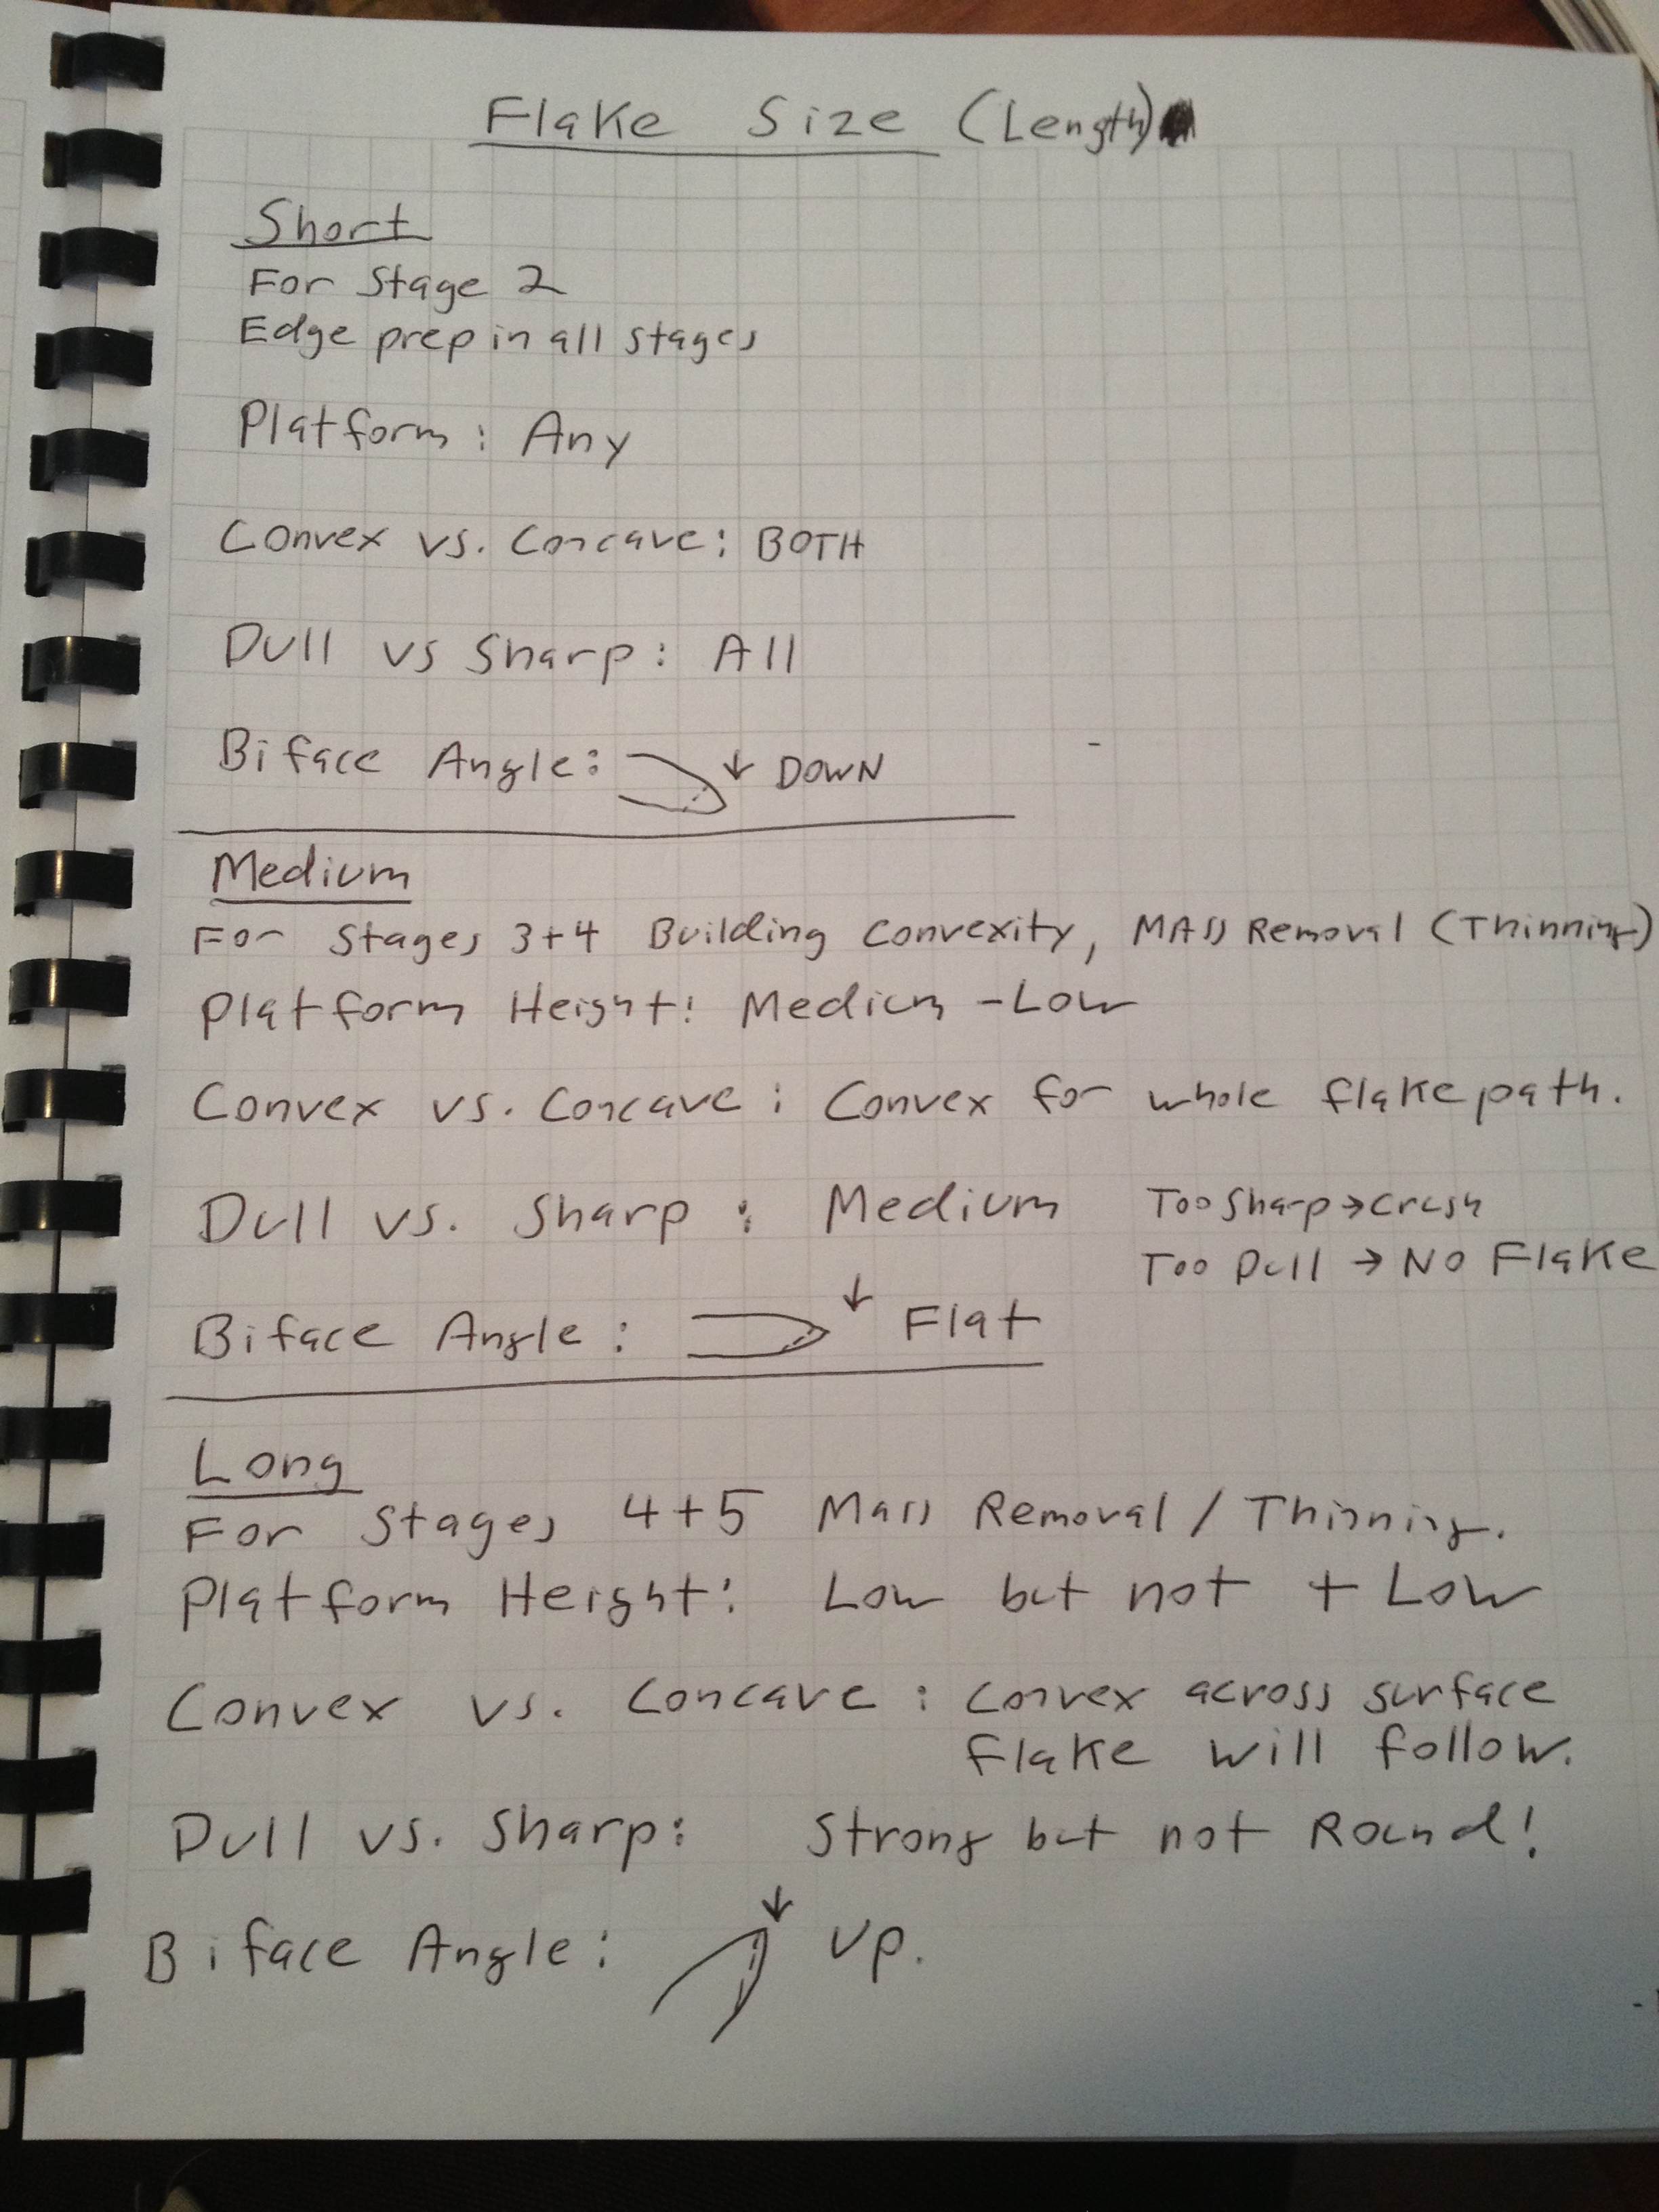 Flake Size (Length)
Short
For Stage 2
Edge prep in all stages
Platform: Any
Convex vs. Concave: BOTH
Dull vs Sharp: All
Biface Angle: ↓ DOWN
Medium
For Stages 3+4 Building Convexity, MASS Removal (Thinning)
Platform Height: Medium - Low
Convex vs. Concave: Convex for whole flake path.
Dull vs. Sharp: Medium Too Sharp → Crush
Too Dull → No Flake
Biface Angle: ↓ Flat
Long
For Stages 4+5 Mass Removal / Thinning.
Platform Height: Low but not + Low
Convex vs. Concave: Convex across surface
Flake will follow.
Dull vs. Sharp: Strong but not Round!
Biface Angle: ↓ Up.